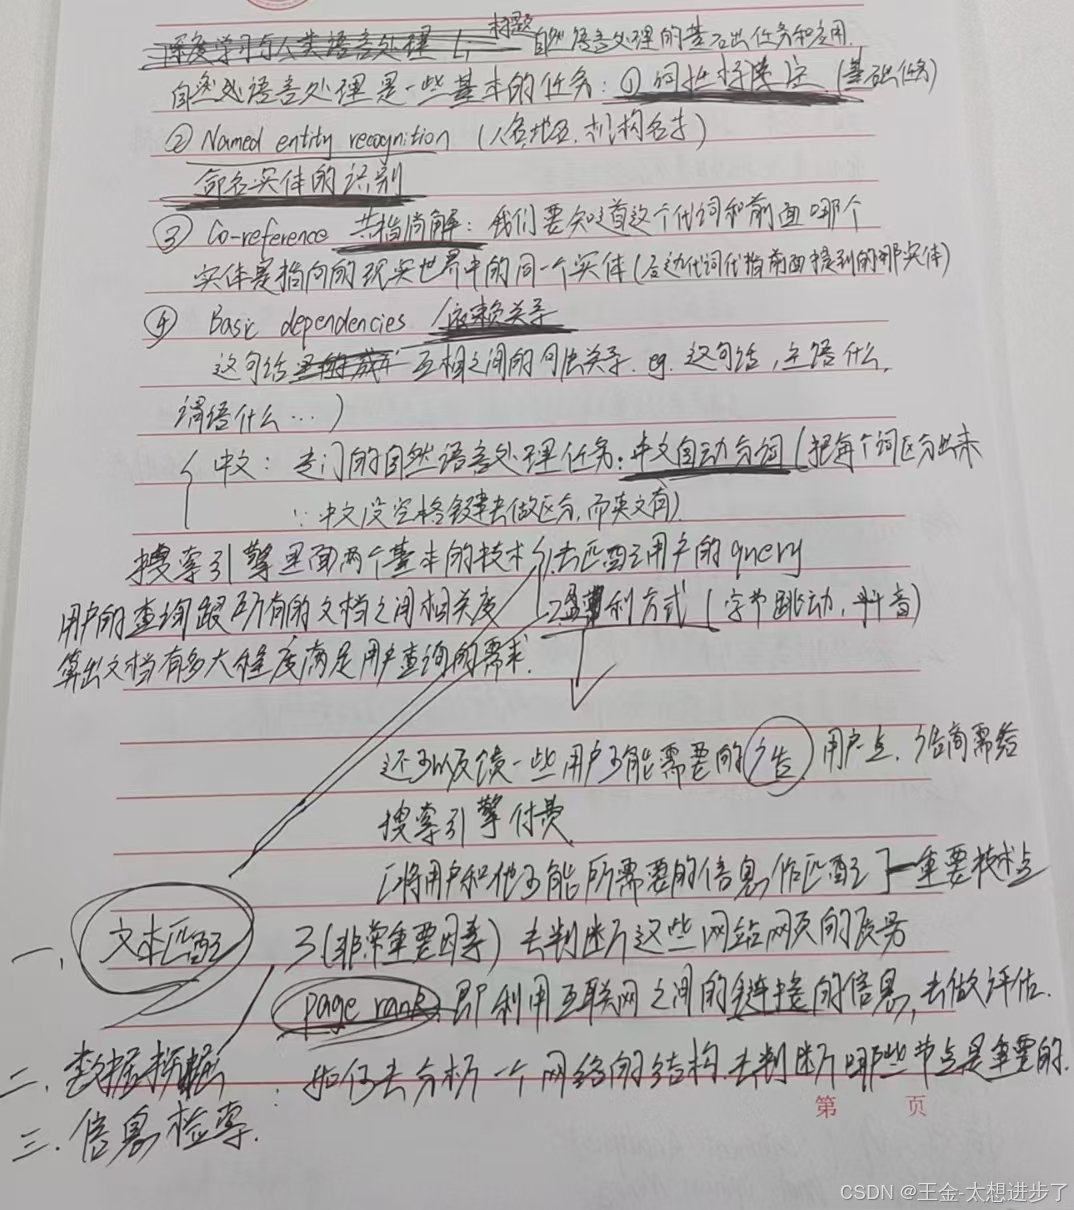 深度学习与人类语言处理 L1 标题 自然语言处理的基础任务和应用.
自然语言处理是一些基本的任务: ① 词性标注 (基础任务)
② Named entity recognition (人名,地名,机构名字)
命名实体的识别
③ Co-reference 共指消解: 我们要知道这个代词和前面哪个
实体是指向的现实世界中的同一个实体(后边代词代指前面提到的哪实体)
④ Basic dependencies 依赖关系
这句话 互相之间的句法关系. eg. 这句话, 主语什么,
谓语什么...)
中文: 专门的自然语言处理任务: 中文自动分词 (把每个词区分出来
∵中文没空格键去做区分, 而英文有)
搜索引擎里面两个基本的技术 1.去匹配用户的query
用户的查询跟所有的文档之间相关度 2.盈利方式 (字节跳动, 抖音)
算出文档有多大程度满足用户查询的需求.
还可以反馈一些用户可能需要的广告 用户点, 广告商需给
搜索引擎付费
[将用户和他可能所需要的信息作匹配]一重要技术点
一、 文本匹配 3(非常重要因素) 去判断这些网站网页的质量
page rank, 即利用互联网之间的链接的信息, 去做评估.
二. 数据挖掘 : 如何去分析一个网络的结构. 去判断哪些节点是重要的.
第 页
三. 信息检索.
CSDN @王金-太想进步了